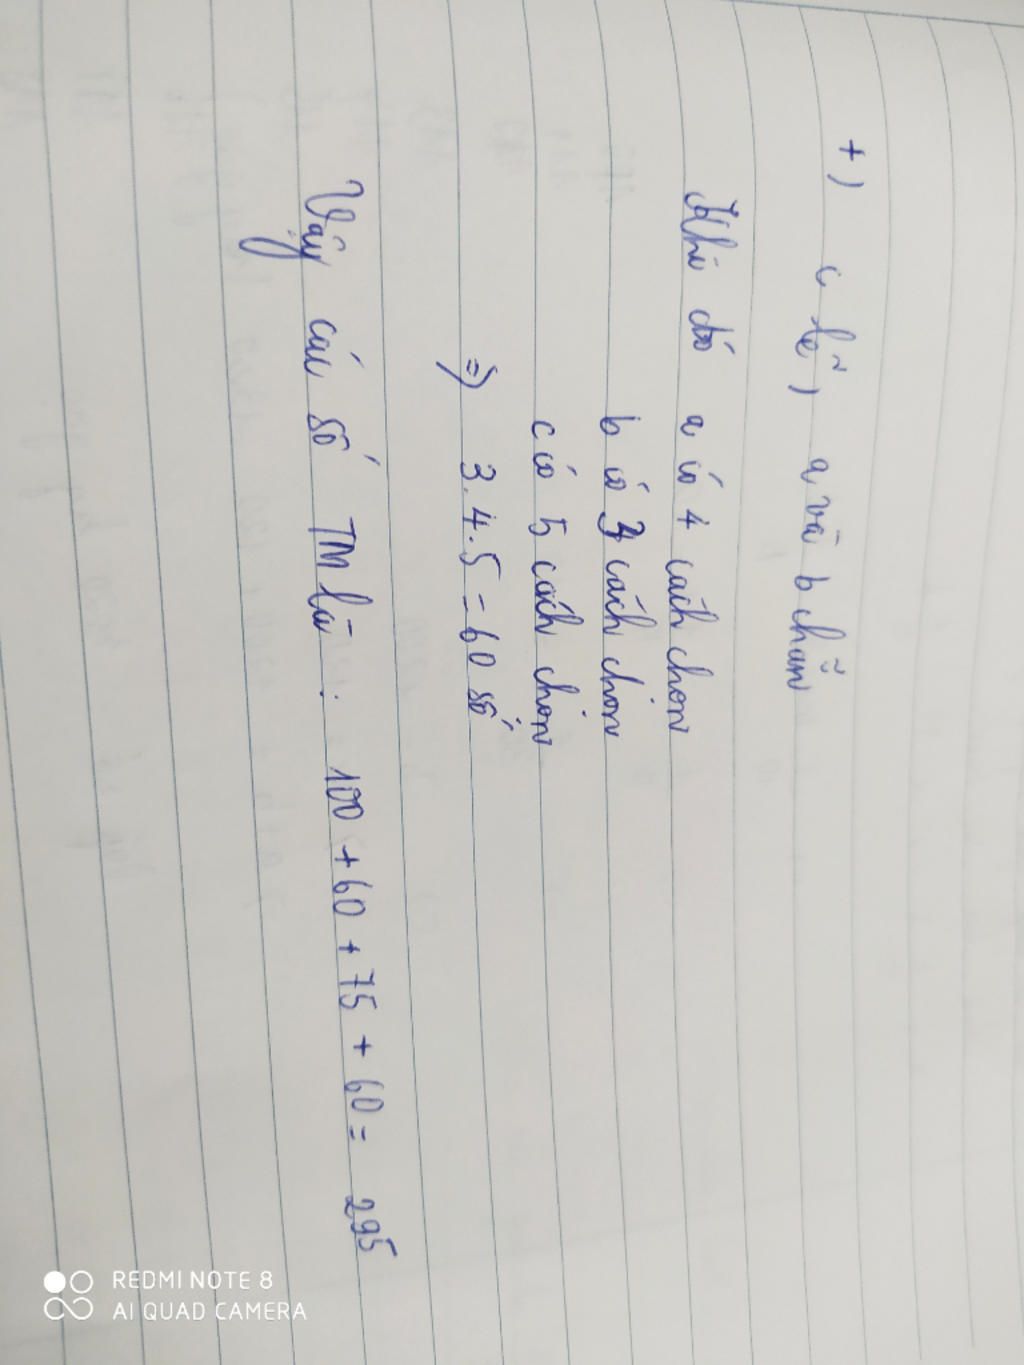 +) c lẻ, a và b chẵn
Khi đó a có 4 cách chọn
b có 3 cách chọn
c có 5 cách chọn
=) 3.4.5 = 60 số
Vậy các số TM là: 100 + 60 + 75 + 60 = 295
REDMI NOTE 8
AI QUAD CAMERA